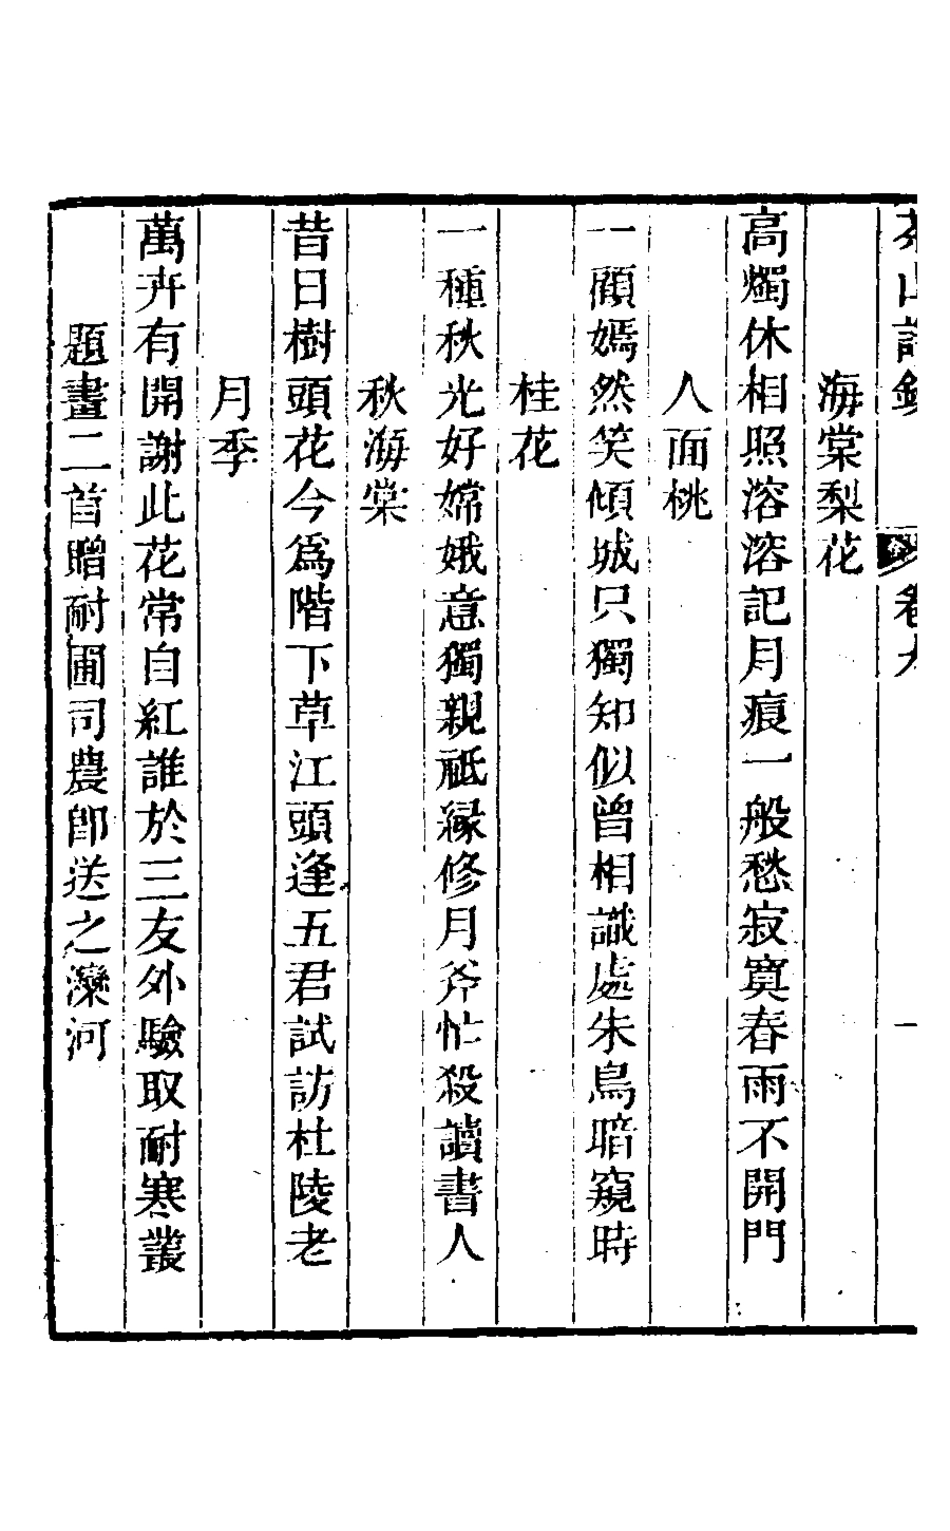 茶山詩鈔 卷九 一
海棠梨花
高燭休相照溶溶記月痕一般愁寂寞春雨不開門
人面桃
一顧嫣然笑傾城只獨知似曾相識處朱鳥暗窺時
桂花
一種秋光好嫦娥意獨親祇緣修月斧忙殺讀書人
秋海棠
昔日樹頭花今爲階下草江頭逢五君試訪杜陵老
月季
萬卉有開謝此花常自紅誰於三友外驗取耐寒叢
題畫二首贈耐圃司農卽送之灤河